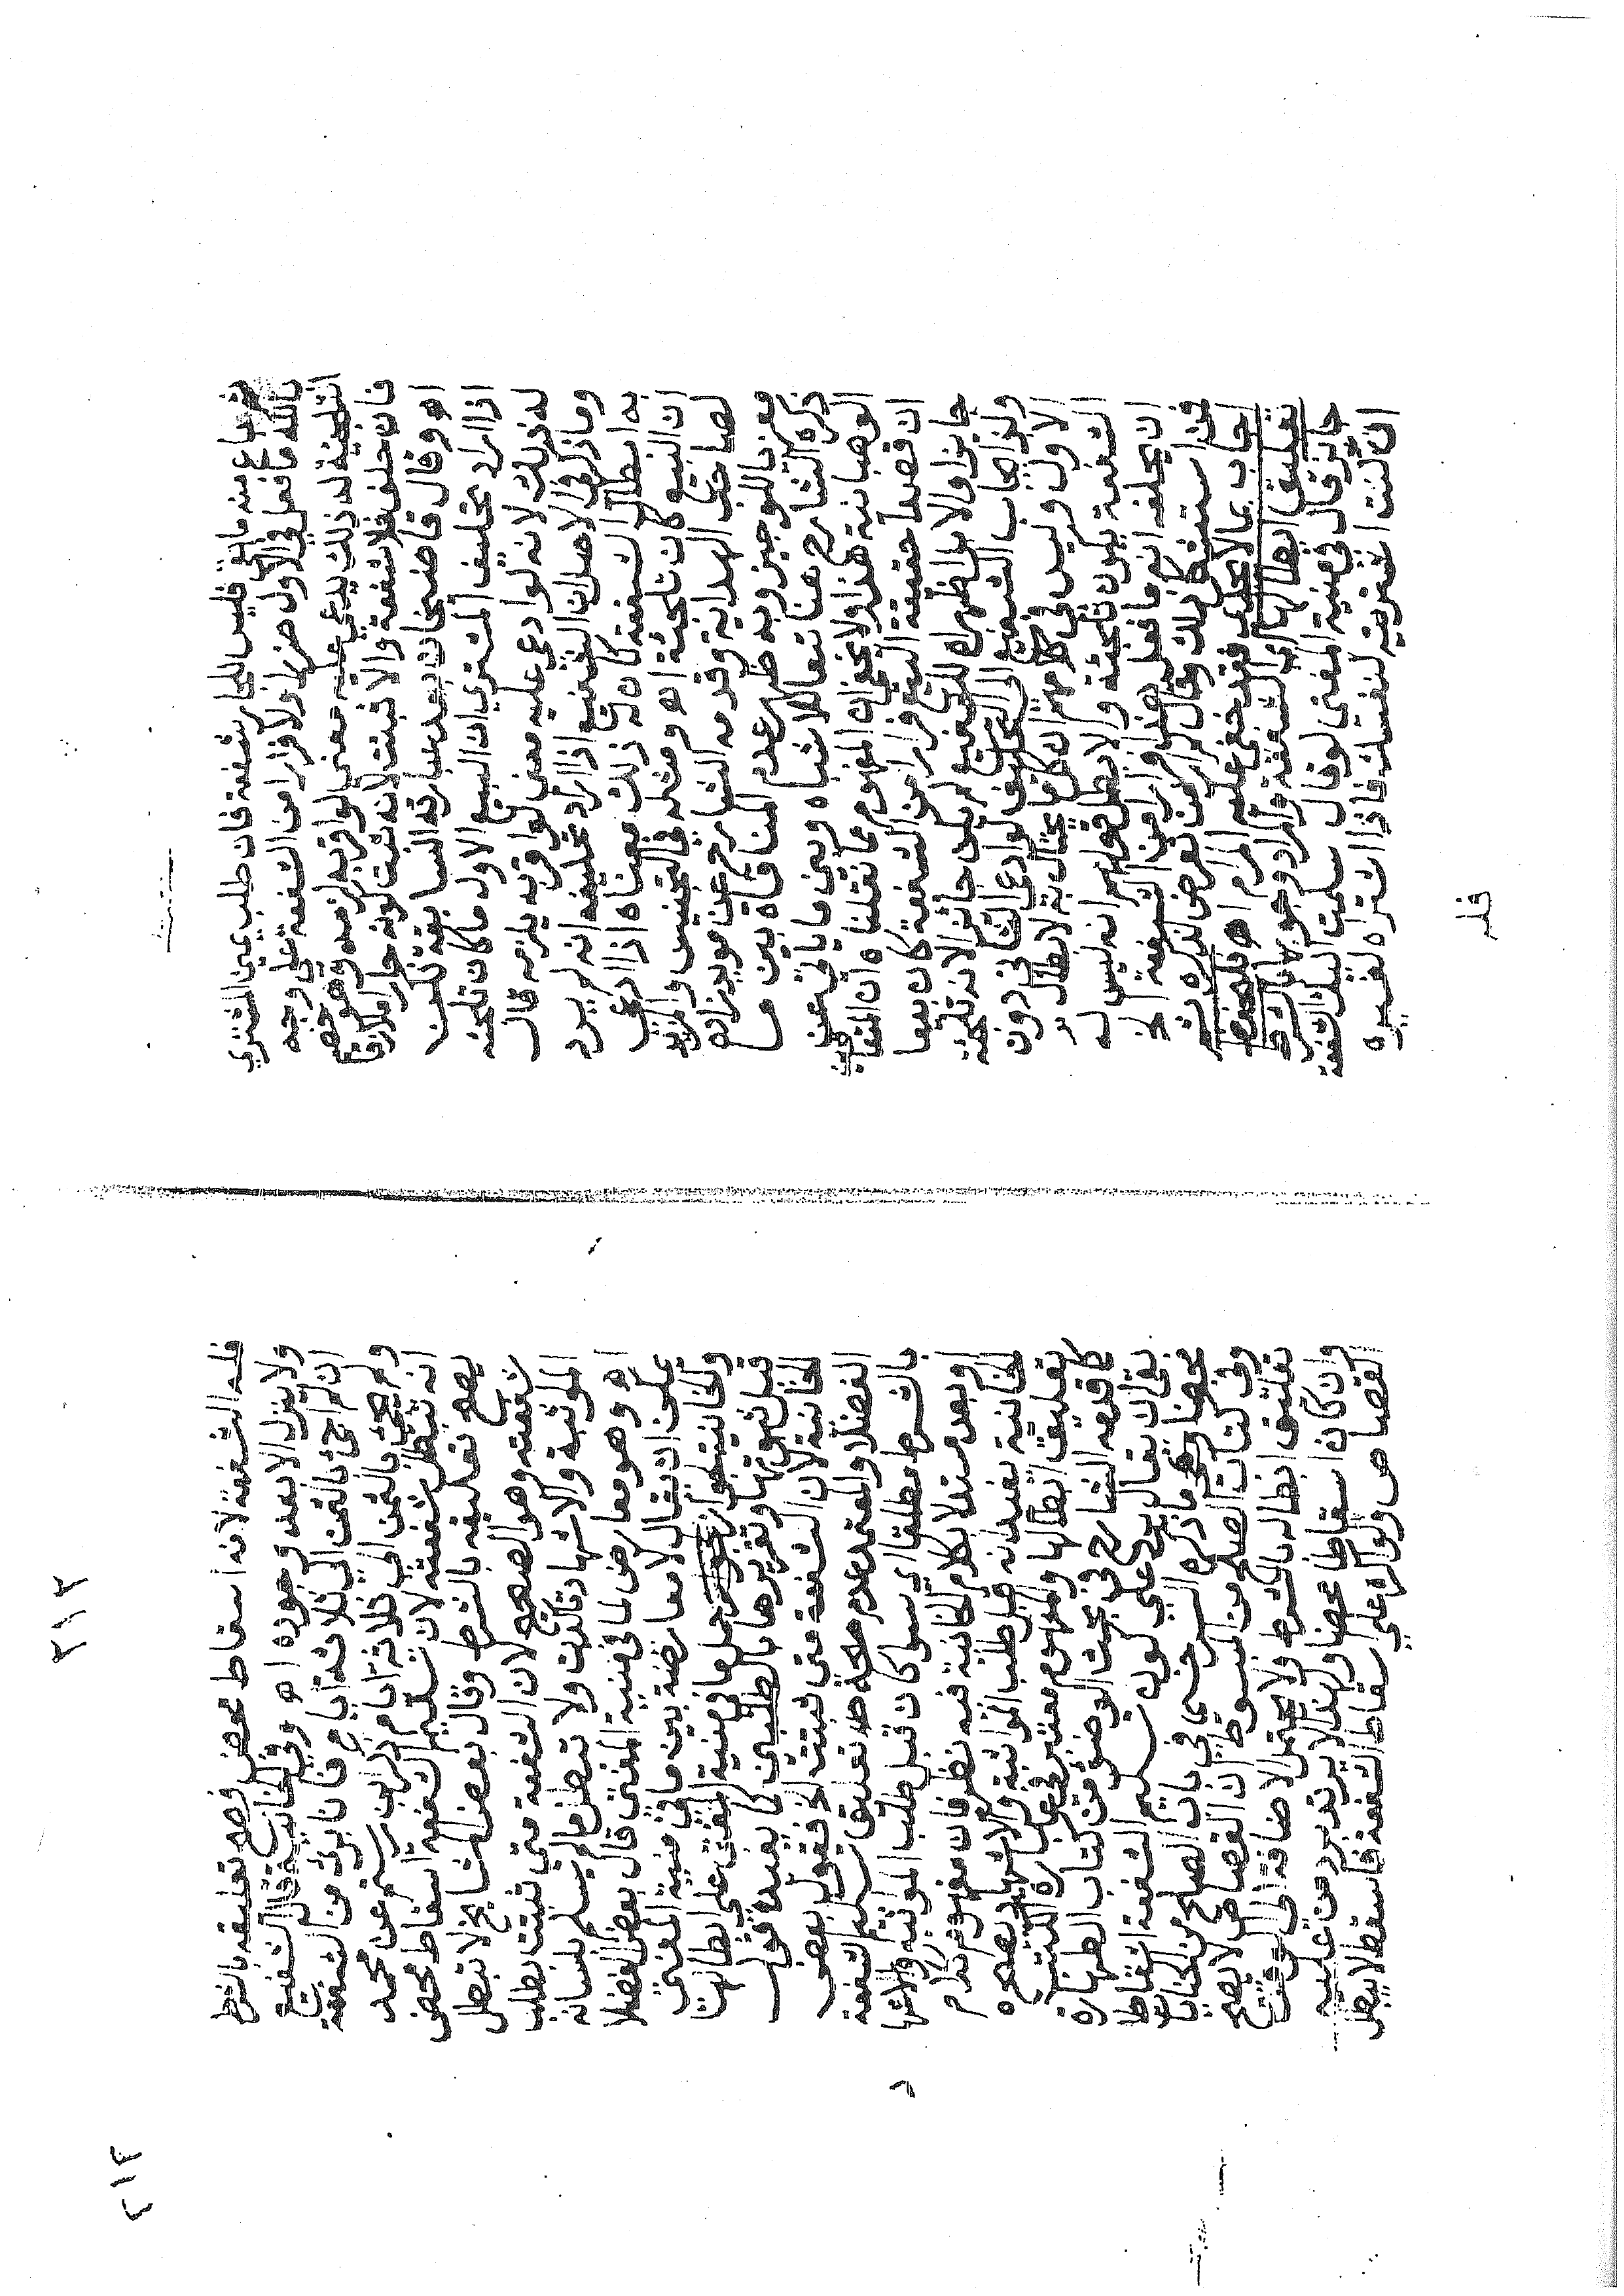 شراعنه ما بقي فليس للجار شفعة فان طلب يمين المشتري
بالله ما فعل في الاول ضررا ولا فرارا من الشفعة على وجه
التلجئة له ذلك يدعي عليه معنى لو اقر به لزمه وهو خصم
فان حلف فلا شفعة والا ثبتت لانه تثبت كونه جارا ملازقا
اهـ وقال قاضيخان بعد عبارته السابقة لكن
اذا اراد تحليف المشتري ان البيع الاول ما كان تلجئة
له ذلك لانه لو ادعى عليه معنى لو اقر به يلزمه قال
وما ذكر في الاصل ان الشفيع اذا اراد تحليفه انه لم يرد
به ابطال الشفعة كان له ذلك معناه اذا ادعى
ان البيع كان تلجئة اهـ ومثله في التجنيس والمزيد
لصاحب الهداية وقدمه الشارح عن مويد زاده
معزيا للوجيز وبه ظهر عدم المنافاة بين ما
ذكره الشارح هنا تبعا للاشباه وبين ما ياتي عن
الوهبانية هذا ولا يخفى ان المفهوم مما نقلناه ان المتعاقدين
ان قصدا حقيقة البيع فرارا من الشفعة كان بيعا
جائزا والا بل اظهراه للشفيع لم يكن جائزا لانه تلجئة
ولذا يجاب الشفيع الى التحليف لو ادعى الثاني دون
الاول وليس في كلامهم ان كل ما يحتال به لابطال
الشفعة يكون تلجئة والا بطل قولهم انه ليس له
ان يحلفه انه ما فعل هذا فرارا من الشفعة الخ
فمن استشكل ذلك وقال لم ار من تعرض لذكره ثم
اجاب بما لا يجدي فقد خفي عليه المرام اهـ قوله
تعليق ابطالها اي الشفعة والمراد وجوبها بالشرط
جائز قال في منية المفتي لو قال سلمت اليك الشفعة
ان كنت اشتريته لنفسك فاذا اشتراه لغيره
فله
٢١٣
فله الشفعة لانه اسقاط محض فصح تعليقه بالشرط
ولا ينزل الا بعد وجوده اهـ وفي الخانية قال الشفيع
ان لم اجئ بالثمن الى ثلاثة ايام فانا برئ من الشفعة
ولم يجئ بالثمن الى ثلاثة ايام ذكر ابن رستم عن محمد
انه تبطل شفعته لان تسليم الشفعة اسقاط محض
يصح تعليقه بالشرط وقال بعض المشايخ لا تبطل
شفعته وهو الصحيح لان الشفعة متى ثبتت بطلب
المواثبة والاشهاد تاكدت ولا تبطل ما لم يسلم بلسانه
اهـ وهو معارض لما في منية المفتي قال بعض الفضلا
يمكن ان يقال لا معارضة بين ما في منية المفتي
والخانية لجواز حمل ما في منية المفتي على ابطالها
قبل ثبوتها وتقريرها بالطلبين كما يفيده قول
الخانية لان الشفعة متى ثبتت الخ فقول بعض
الفضلا والمعتمد عدم صحة تعليق تسليم الشفعة
بالشرط مطلقا اي سوا كان قبل طلب المواثبة والاشهاد
او بعده مستدلا بكلام الخانية فيه نظر فان مفهوم كلام
الخانية يفيد انه قبل طلب المواثبة والاشهاد يصح
تعليق ابطالها والمفهوم معتبر في عبارة الكتب
كما قدمه الشارح في بحث الوضوء من كتاب الطهارة
بقي ان يقال يرد على كون تسليم الشفعة اسقاطا
محضا وهو ما ذكره السرخسي في باب الصلح من الجنايات
وفي كتاب الصلح من المبسوط ان القصاص لا يصح
تعليق ابطاله بالشرط ولا يحتمل الاضافة الى الوقت
وان كان اسقاطا محضا ولهذا لا يرتد برد من عليه
القصاص ولو اكره على اسقاط الشفعة فاسقط لا يبطل
٢١٤